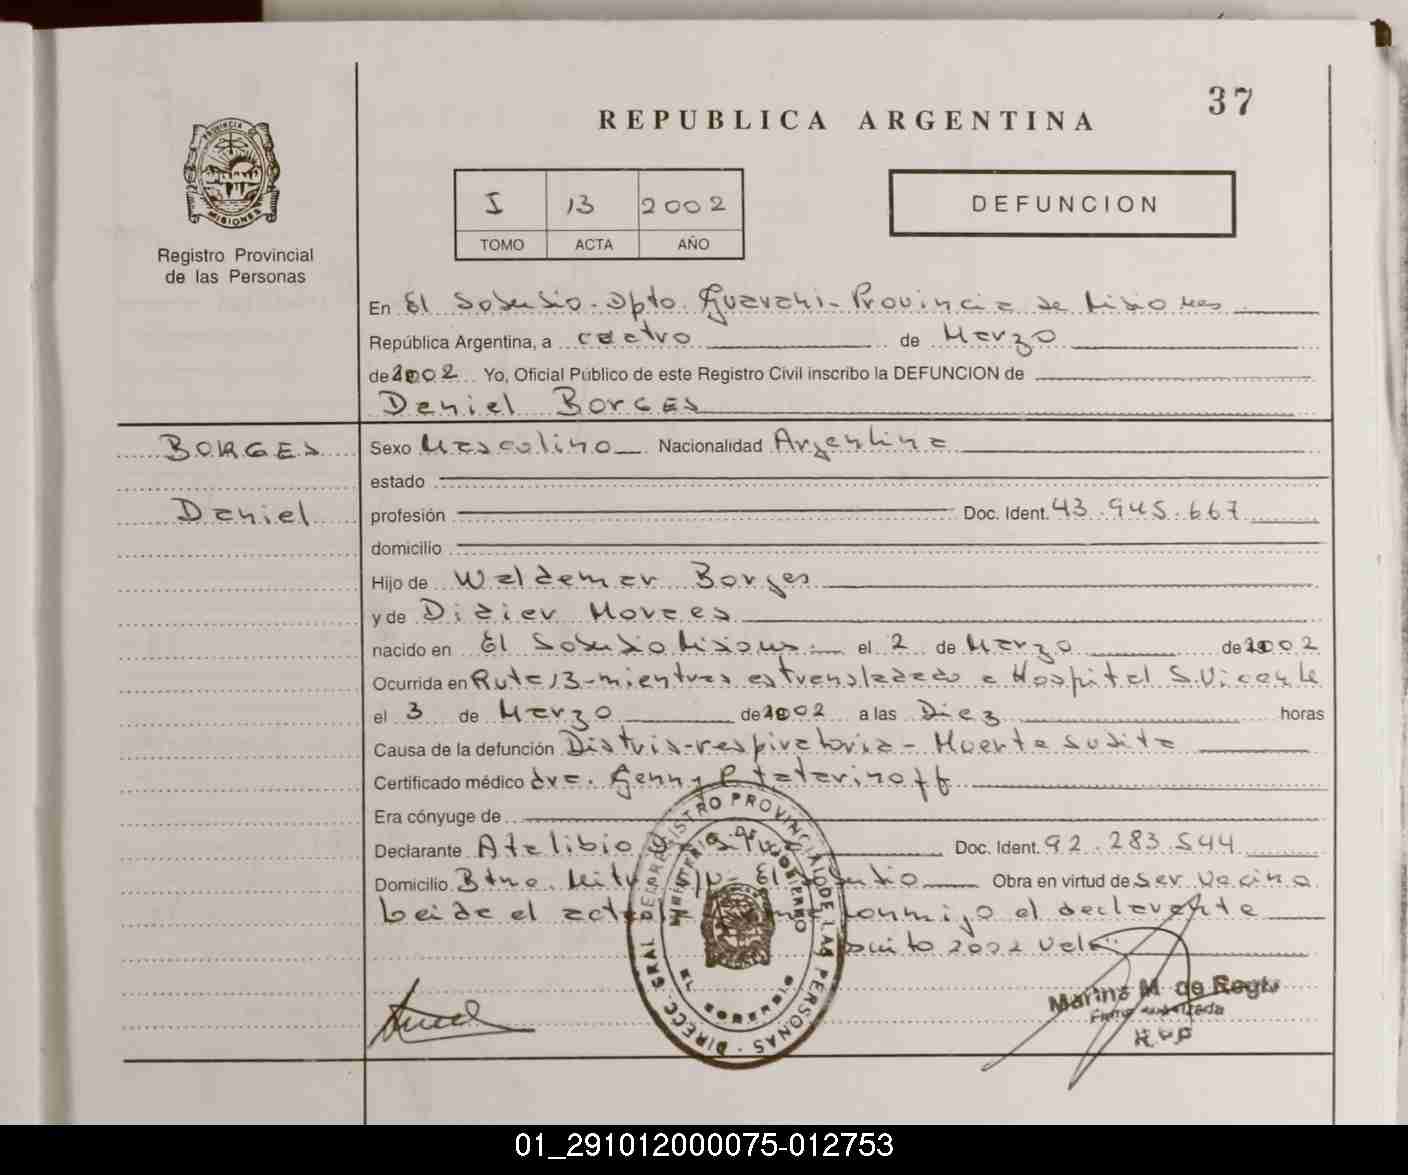 37
REPUBLICA ARGENTINA
PROVINCIA DE
MISIONES
I 13 2002
TOMO ACTA AÑO
DEFUNCION
Registro Provincial
de las Personas
En El Soberbio - Dpto. Guarani - Provincia de Misiones
República Argentina, a cuatro de Marzo
de 2002 Yo, Oficial Público de este Registro Civil inscribo la DEFUNCION de
Daniel BORGES
BORGES
Daniel
Sexo Masculino Nacionalidad Argentina
estado
profesión Doc. Ident. 43.945.667
domicilio
Hijo de Waldemar Borges
y de Didier Moraes
nacido en El Soberbio Misiones el 2 de Marzo de 2002
Ocurrida en Ruta 13 - mientras es transladado a Hospital S. Vicente
el 3 de Marzo de 2002 a las Diez horas
Causa de la defunción Distris - respiratoria - Muerte subita
Certificado médico dra. Genny Tatarinoff
Era cónyuge de
Declarante Atalibio Doc. Ident. 92.283.544
Domicilio Btme. Mitre El Soberbio Obra en virtud de Ser Vecino
Leida el acta conmigo el declarante
2002 Vale
DIRECC. GRAL DEL REGISTRO PROVINCIAL DE LAS PERSONAS
MINISTERIO DE GOBIERNO
EL SOBERBIO
Marina M. de
Firma autorizada
RPP
01_291012000075-012753